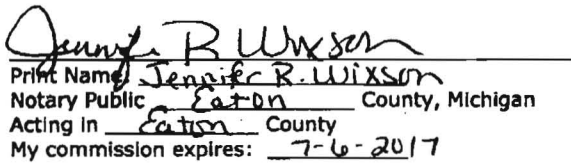 Jennifer R Wixson
Print Name: Jennifer R. Wixson
Notary Public Eaton County, Michigan
Acting in Eaton County
My commission expires: 7-6-2017